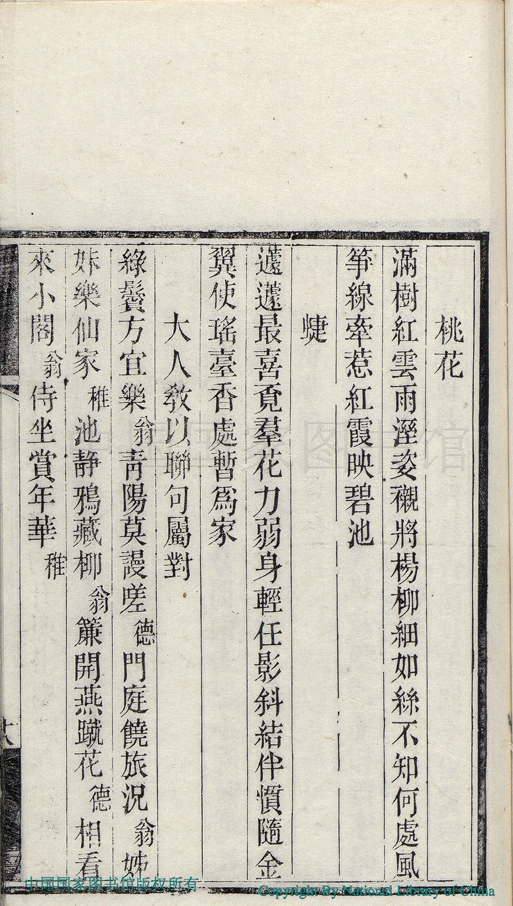 桃花
滿樹紅雲雨溼姿襯將楊柳細如絲不知何處風
筝線牽惹紅霞映碧池
蜨
蘧蘧最喜覓羣花力弱身輕任影斜結伴慣隨金
翼使瑤臺香處暫爲家
大人教以聯句屬對
綠鬢方宜樂翁青陽莫謾嗟德門庭饒旅況翁姊
妹樂仙家稚池静鴉藏柳翁簾開燕蹴花德相看
來小閣翁侍坐賞年華稚
十八
中国国家图书馆
中国国家图书馆版权所有
Copyright By National Library of China